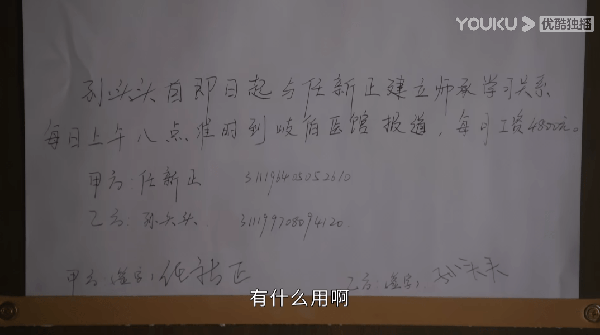 YOUKU 优酷独播
孙头头自即日起与任新正建立师承学习关系
每日上午八点准时到岐伯医馆报道，每月工资4800元。
甲方：任新正
乙方：孙头头
甲方：签字：任新正
乙方：签字：孙头头
有什么用啊